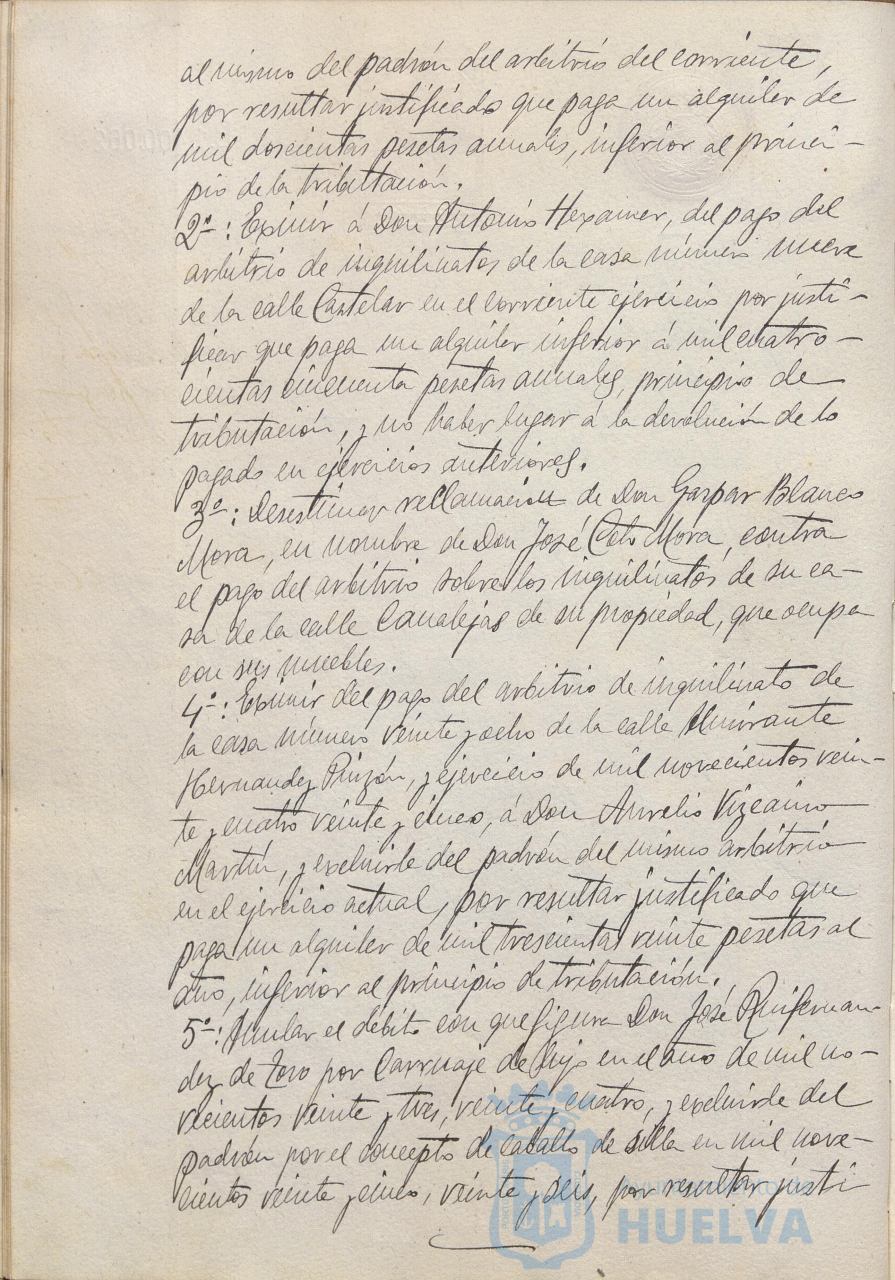 al mismo del padrón del arbitrio del corriente,
por resultar justificado que paga un alquiler de
mil doscientas pesetas anuales, inferior al princi-
pio de la tributación.
2º: Eximir á Don Antonio Hexainer, del pago del
arbitrio de inquilinatos de la casa número nueve
de la calle Castelar en el corriente ejercicio por justi-
ficar que paga un alquiler inferior á mil cuatro-
cientas cincuenta pesetas anuales, principio de
tributación, y no haber lugar á la devolución de lo
pagado en ejercicios anteriores.
3º: Desestimar reclamación de Don Gaspar Blanco
Mora, en nombre de Don José Mora, contra
el pago del arbitrio sobre los inquilinatos de su ca-
sa de la calle Canalejas de su propiedad, que ocupa
con sus muebles.
4º: Eximir del pago del arbitrio de inquilinato de
la casa número veinte y ocho de la calle Almirante
Hernandez Pinzón, y ejercicio de mil novecientos vein-
te y cuatro veinte y cinco, á Don Aurelio Vizcaino
Martín, y excluirle del padrón del mismo arbitrio
en el ejercicio actual, por resultar justificado que
paga un alquiler de mil trescientas veinte pesetas al
año, inferior al principio de tributación.
5º: Anular el débito con que figura Don José Ruifernan-
dez de Toro por Carruaje de lujo en el año de mil no-
vecientos veinte y tres, veinte y cuatro, y excluirle del
padrón por el concepto de caballo de silla en mil nove-
cientos veinte y cinco, veinte y seis, por resultar justi
HUELVA